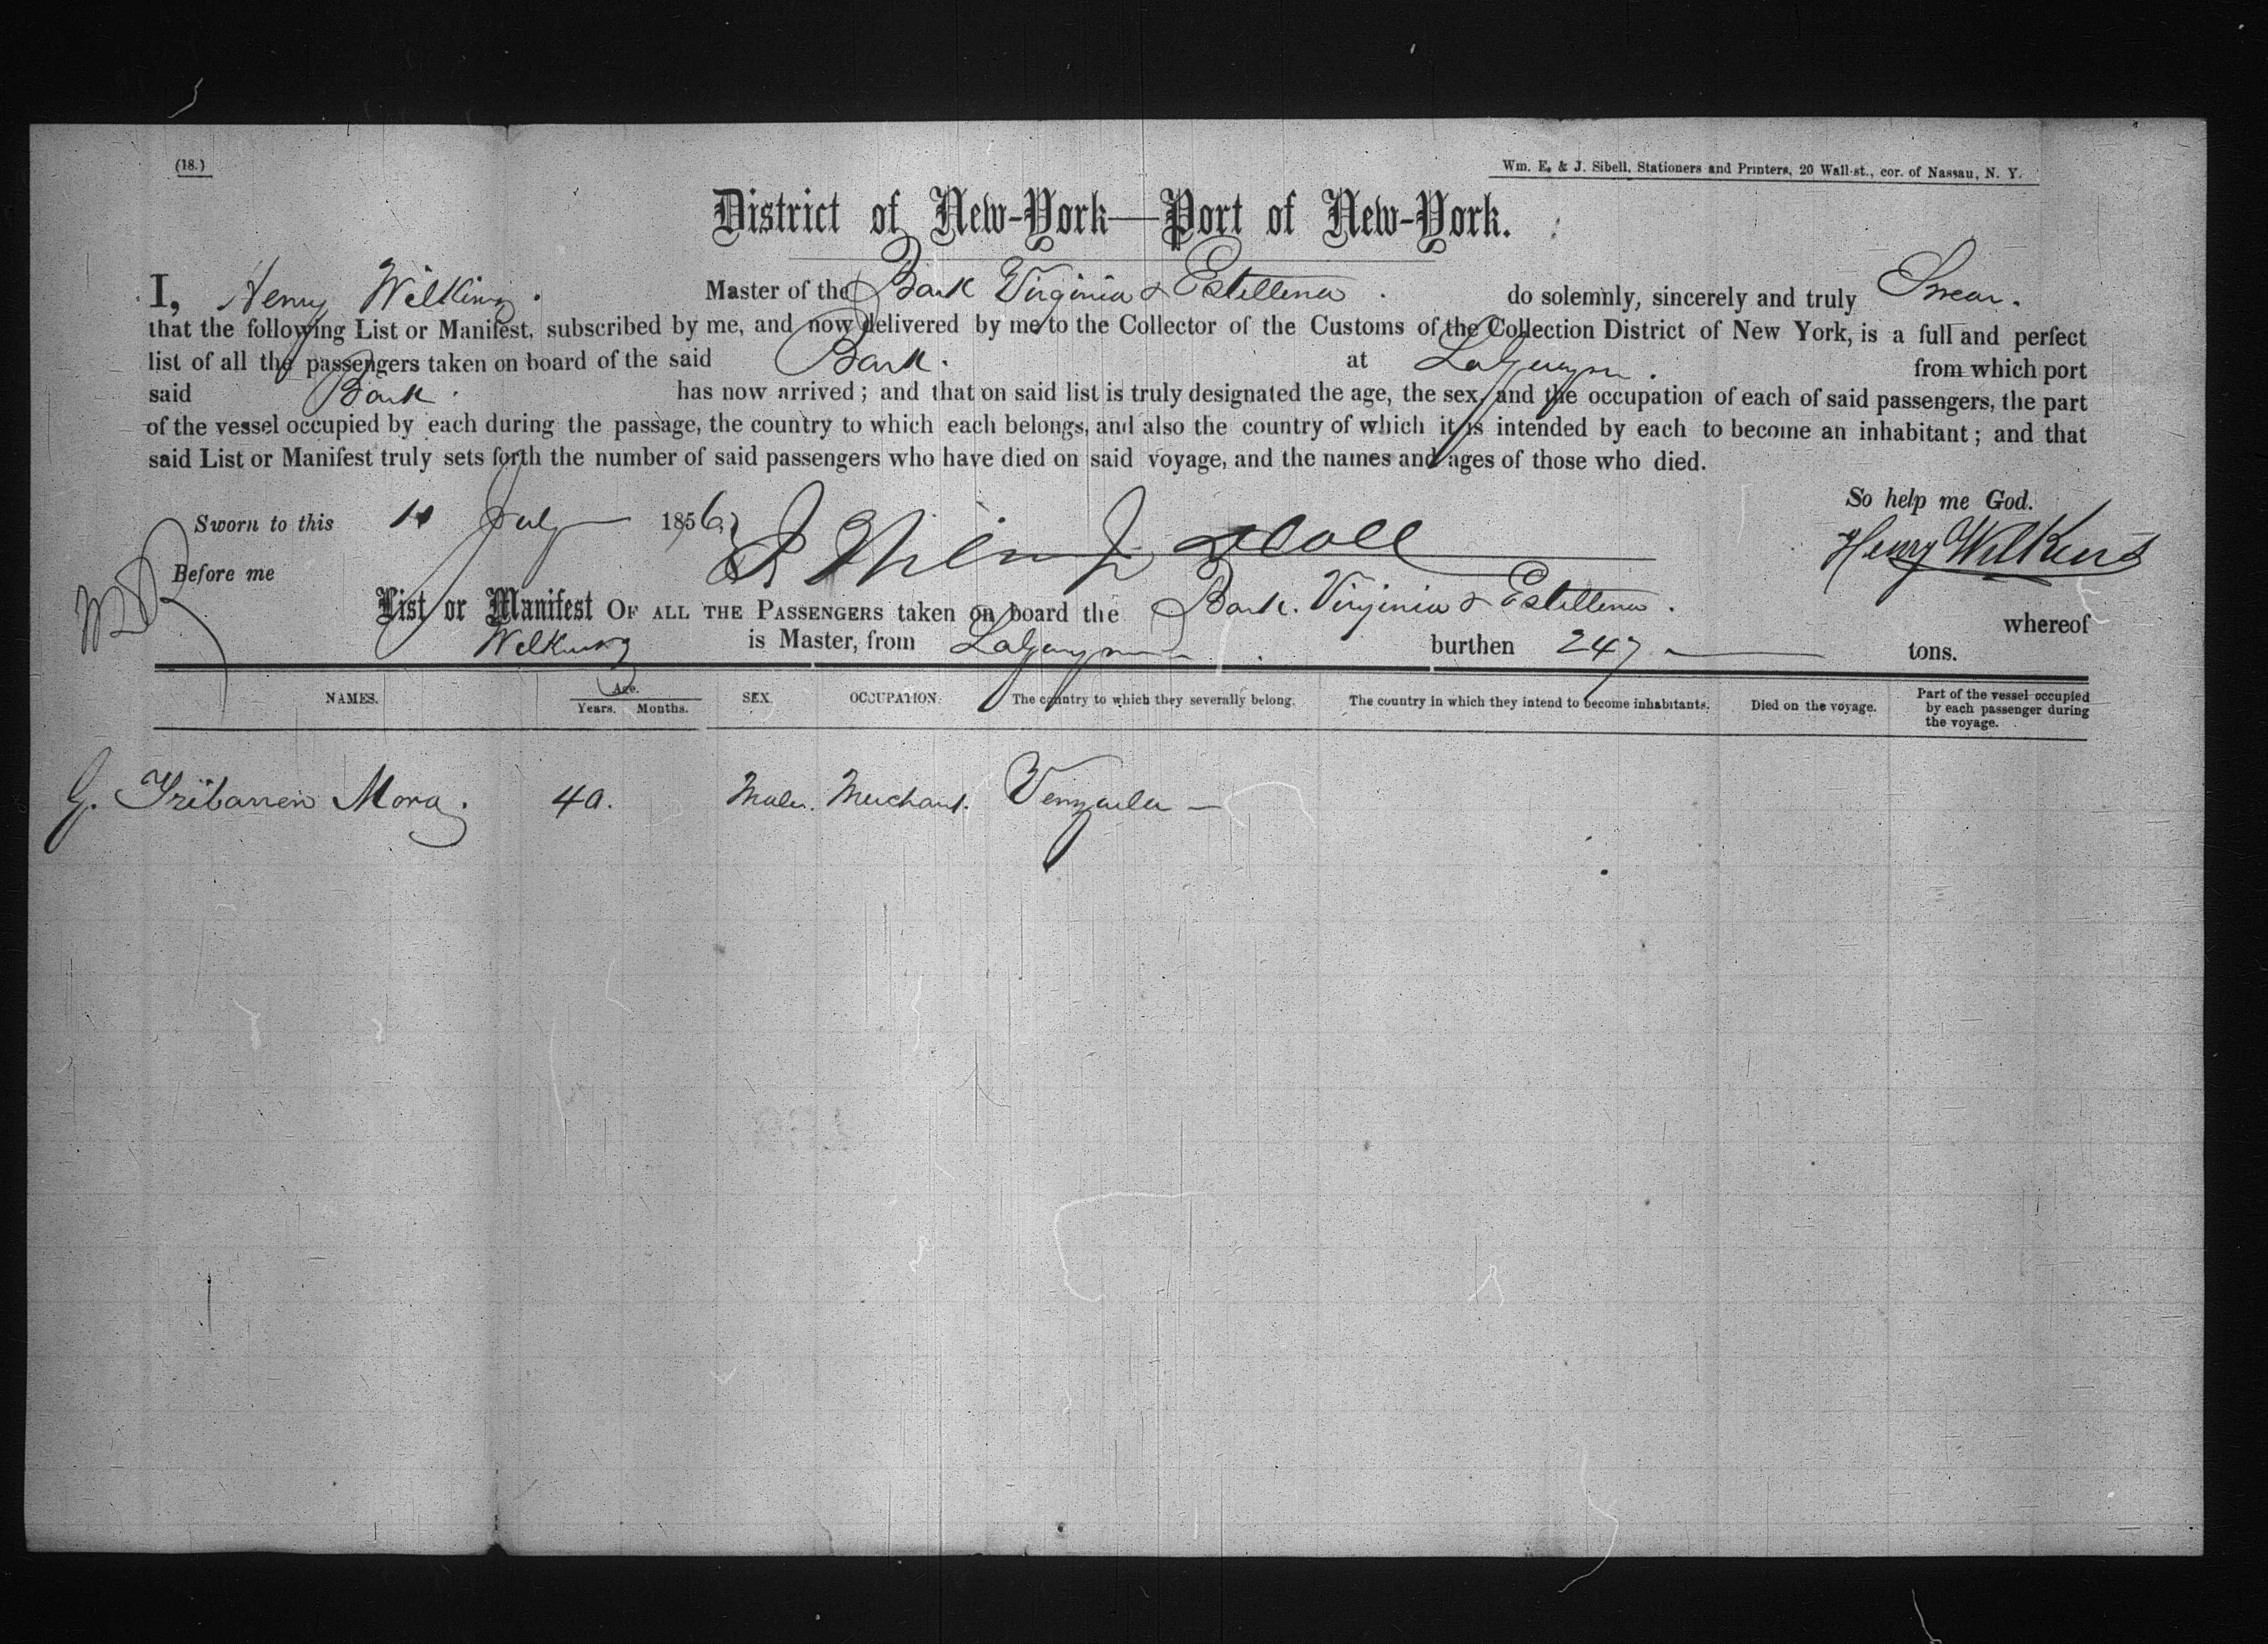 (18.)
Wm. E. & J. Sibell, Stationers and Printers, 20 Wall-st., cor. of Nassau, N. Y.
District of New-York—Port of New-York.
I, Henry Wilkins. Master of the Bark Virginia & Estellena. do solemnly, sincerely and truly Swear.
that the following List or Manifest, subscribed by me, and now delivered by me to the Collector of the Customs of the Collection District of New York, is a full and perfect
list of all the passengers taken on board of the said Bark. at LaGuayra. from which port
said Bark. has now arrived; and that on said list is truly designated the age, the sex, and the occupation of each of said passengers, the part
of the vessel occupied by each during the passage, the country to which each belongs, and also the country of which it is intended by each to become an inhabitant; and that
said List or Manifest truly sets forth the number of said passengers who have died on said voyage, and the names and ages of those who died.
So help me God.
Sworn to this July 1856, Henry Wilkins
Before me
List or Manifest OF ALL THE PASSENGERS taken on board the Bark. Virginia & Estellena. whereof
Wilkins is Master, from LaGuayra burthen 247 tons.
NAMES. Age. Years. Months. SEX. OCCUPATION. The country to which they severally belong. The country in which they intend to become inhabitants. Died on the voyage. Part of the vessel occupied by each passenger during the voyage.
G. Yribarren Mora. 40. Male. Merchant. Venzuela —